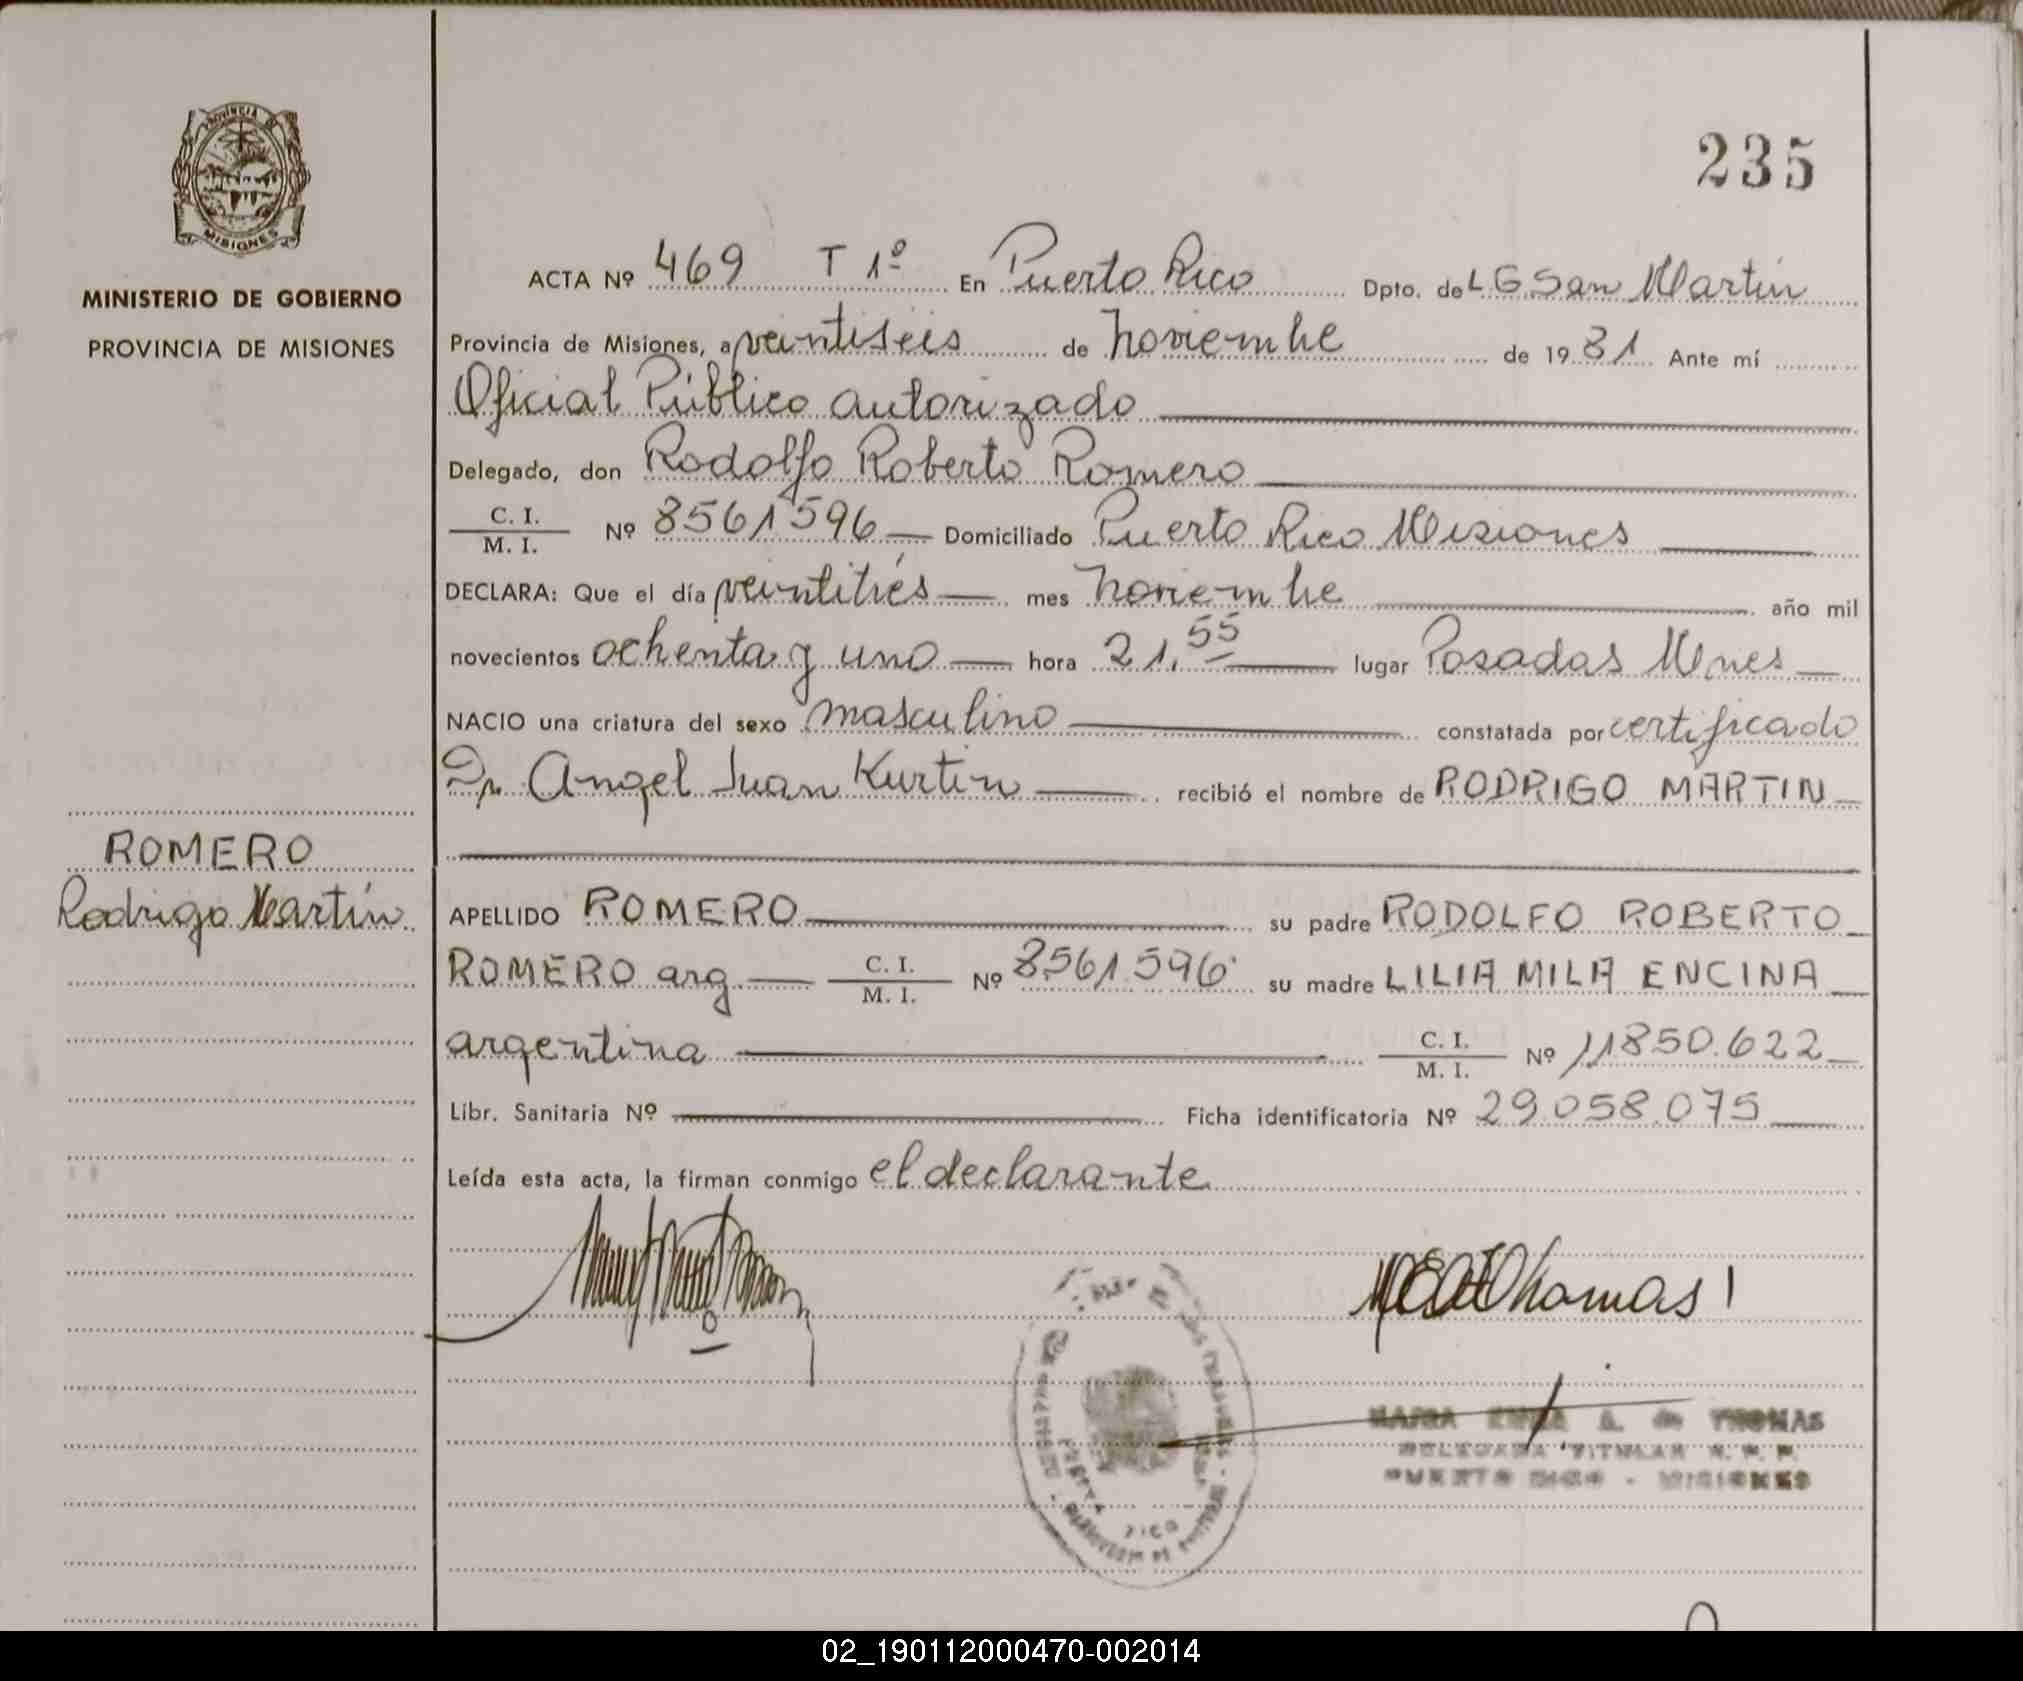 PROVINCIA DE
MISIONES
MINISTERIO DE GOBIERNO
PROVINCIA DE MISIONES
ROMERO
Rodrigo Martín
235
ACTA Nº 469 T 1º En Puerto Rico Dpto. de L G San Martín
Provincia de Misiones, a veintiseis de noviembre de 1981 Ante mí
Oficial Público autorizado
Delegado, don Rodolfo Roberto Romero
C. I.
M. I. Nº 8561596 Domiciliado Puerto Rico Misiones
DECLARA: Que el día veintitrés mes noviembre año mil
novecientos ochenta y uno hora 21.55 lugar Posadas Mnes
NACIO una criatura del sexo masculino constatada por certificado
Dr. Angel Juan Kurtin recibió el nombre de RODRIGO MARTIN
APELLIDO ROMERO su padre RODOLFO ROBERTO
ROMERO arg. C. I.
M. I. Nº 8561.596 su madre LILIA MILA ENCINA
argentina C. I.
M. I. Nº 11850.622
Libr. Sanitaria Nº Ficha identificatoria Nº 29.058.075
Leída esta acta, la firman conmigo el declarante
Thomas
A. de THOMAS
DELEGADA TITULAR
PUERTO RICO - MISIONES
02_190112000470-002014